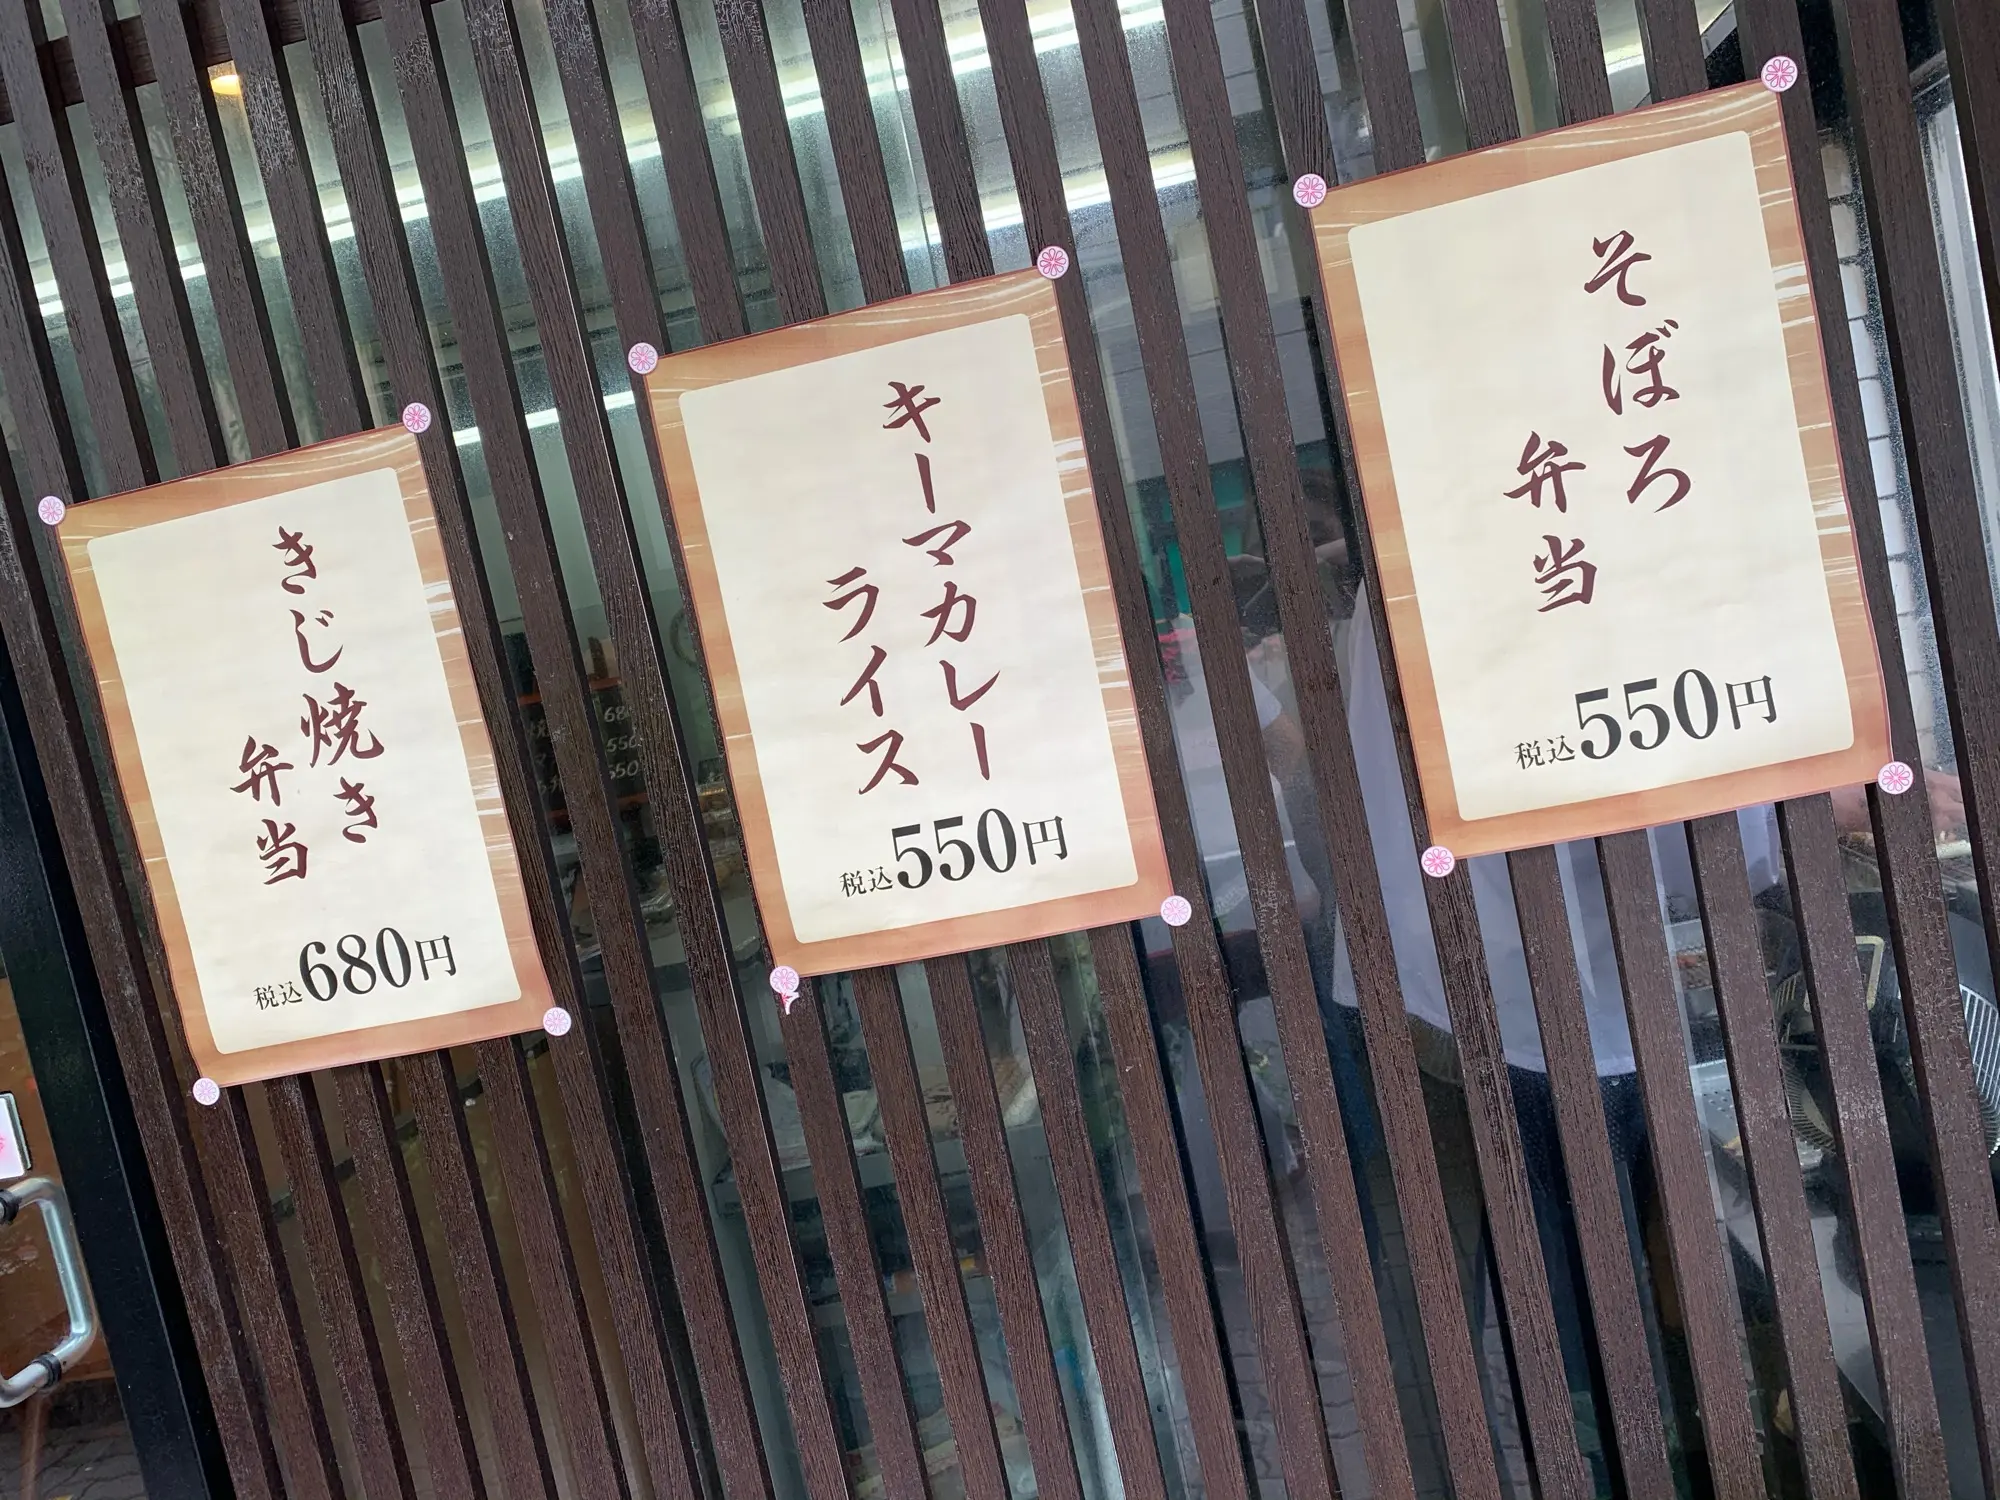 そぼろ
弁当
税込550円
キーマカレー
ライス
税込550円
きじ焼き
弁当
税込680円